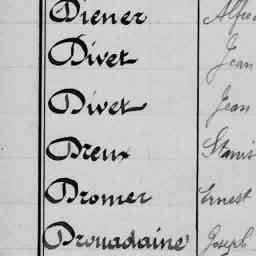 Diener
Divet Jean
Divet Jean
Dreux Stanis
Dromer Ernest
Drouadaine Joseph